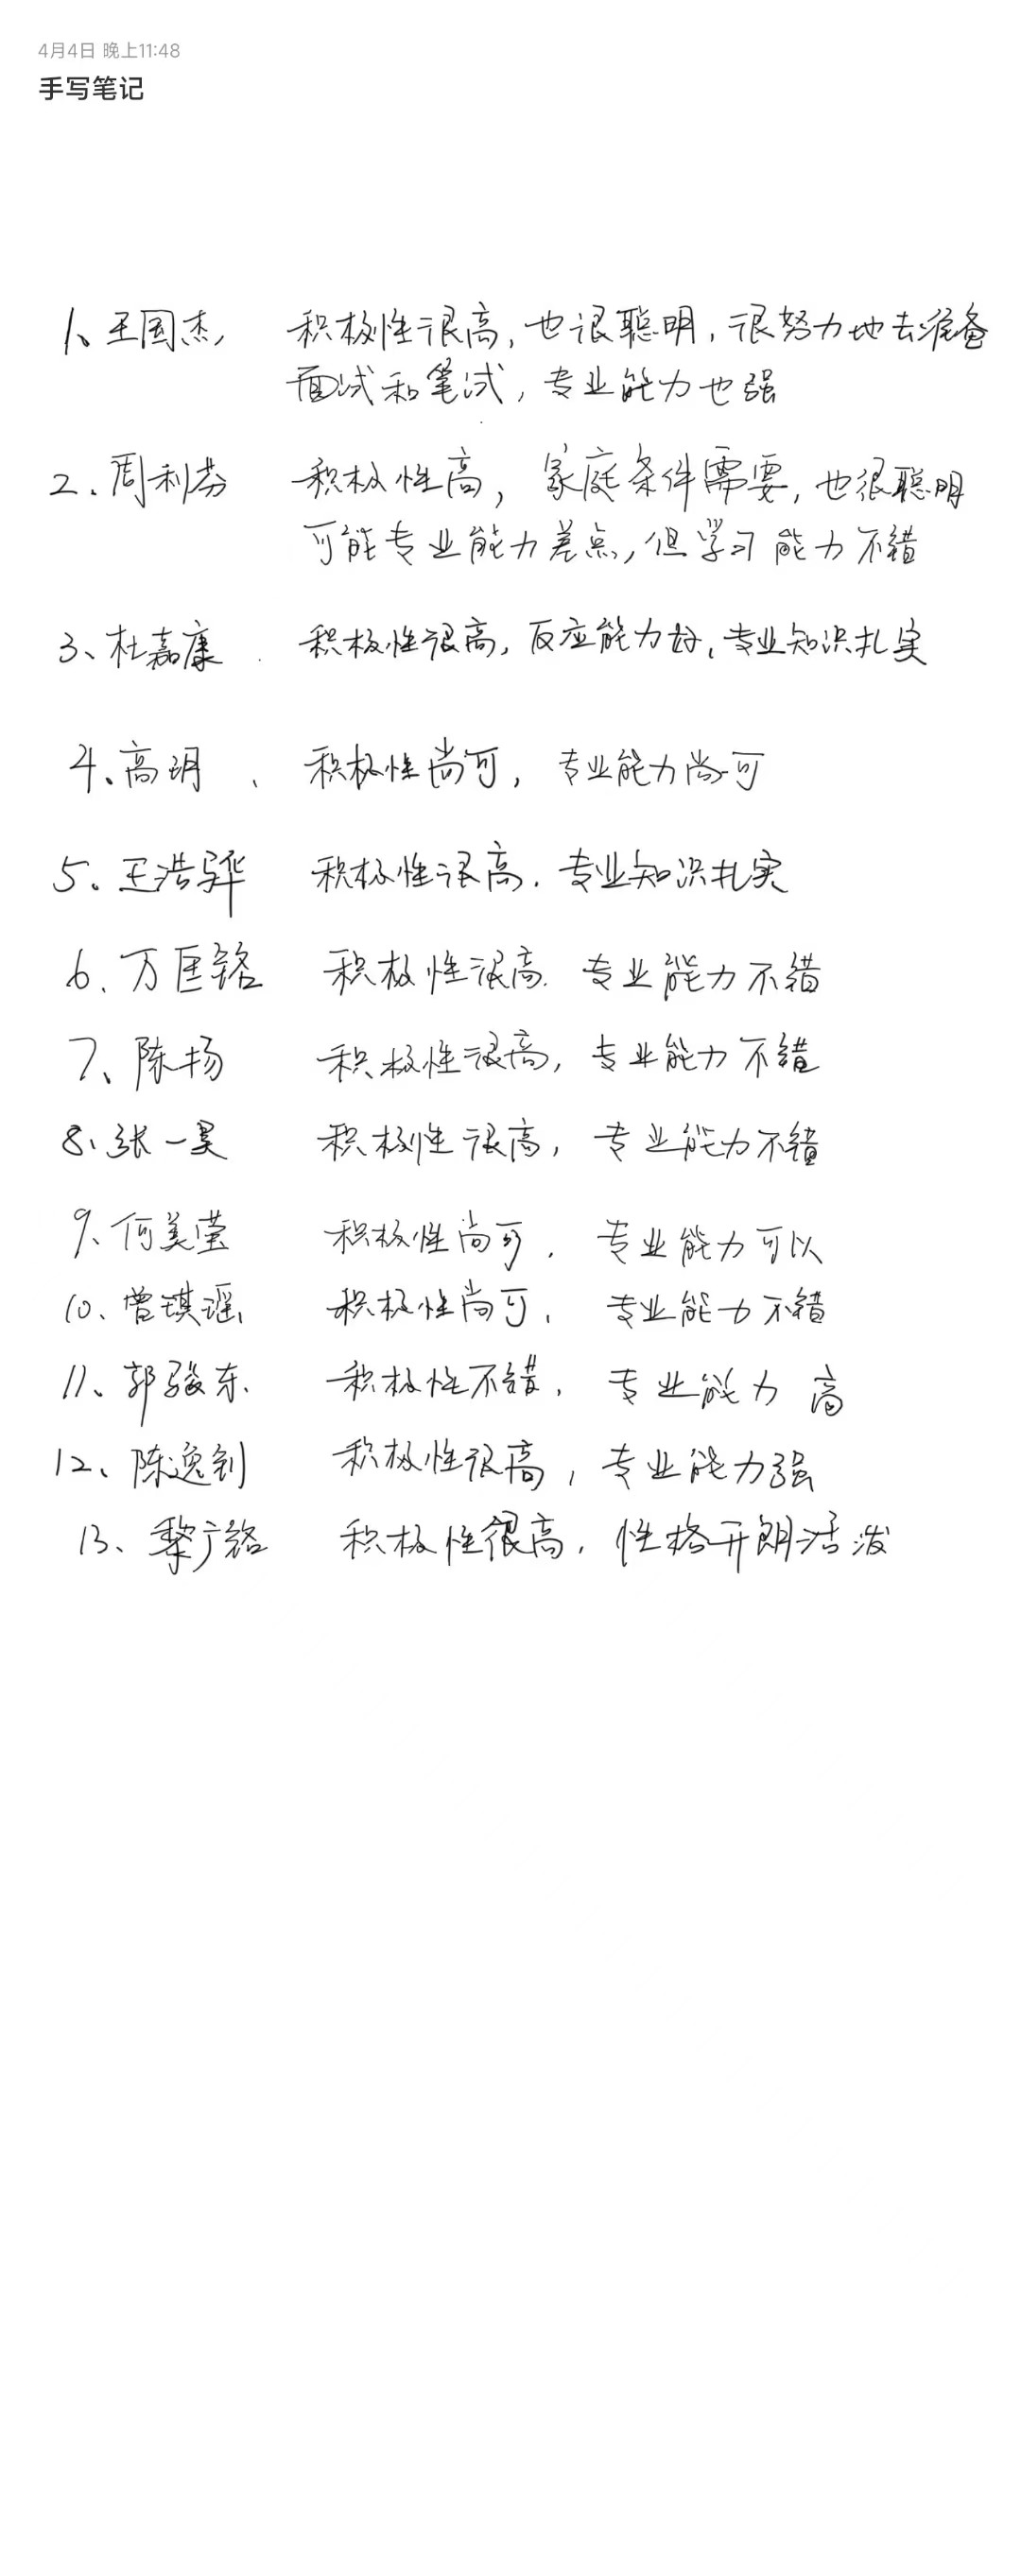 4月4日 晚上11:48
手写笔记
1、王国杰 积极性很高，也很聪明，很努力地去准备
面试和笔试，专业能力也强
2、周利芬 积极性高，家庭条件需要，也很聪明
可能专业能力差点，但学习能力不错
3、杜嘉康 积极性很高，反应能力好，专业知识扎实
4、高玥、 积极性尚可，专业能力尚可
5、王浩骅 积极性很高，专业知识扎实
6、万匡铭 积极性很高，专业能力不错
7、陈扬 积极性很高，专业能力不错
8、张一昊 积极性很高，专业能力不错
9、何美莹 积极性尚可，专业能力可以
10、曾琪瑶 积极性尚可，专业能力不错
11、郭骏东 积极性不错，专业能力 高
12、陈逸钊 积极性很高，专业能力强
13、黎广铭 积极性很高，性格开朗活泼